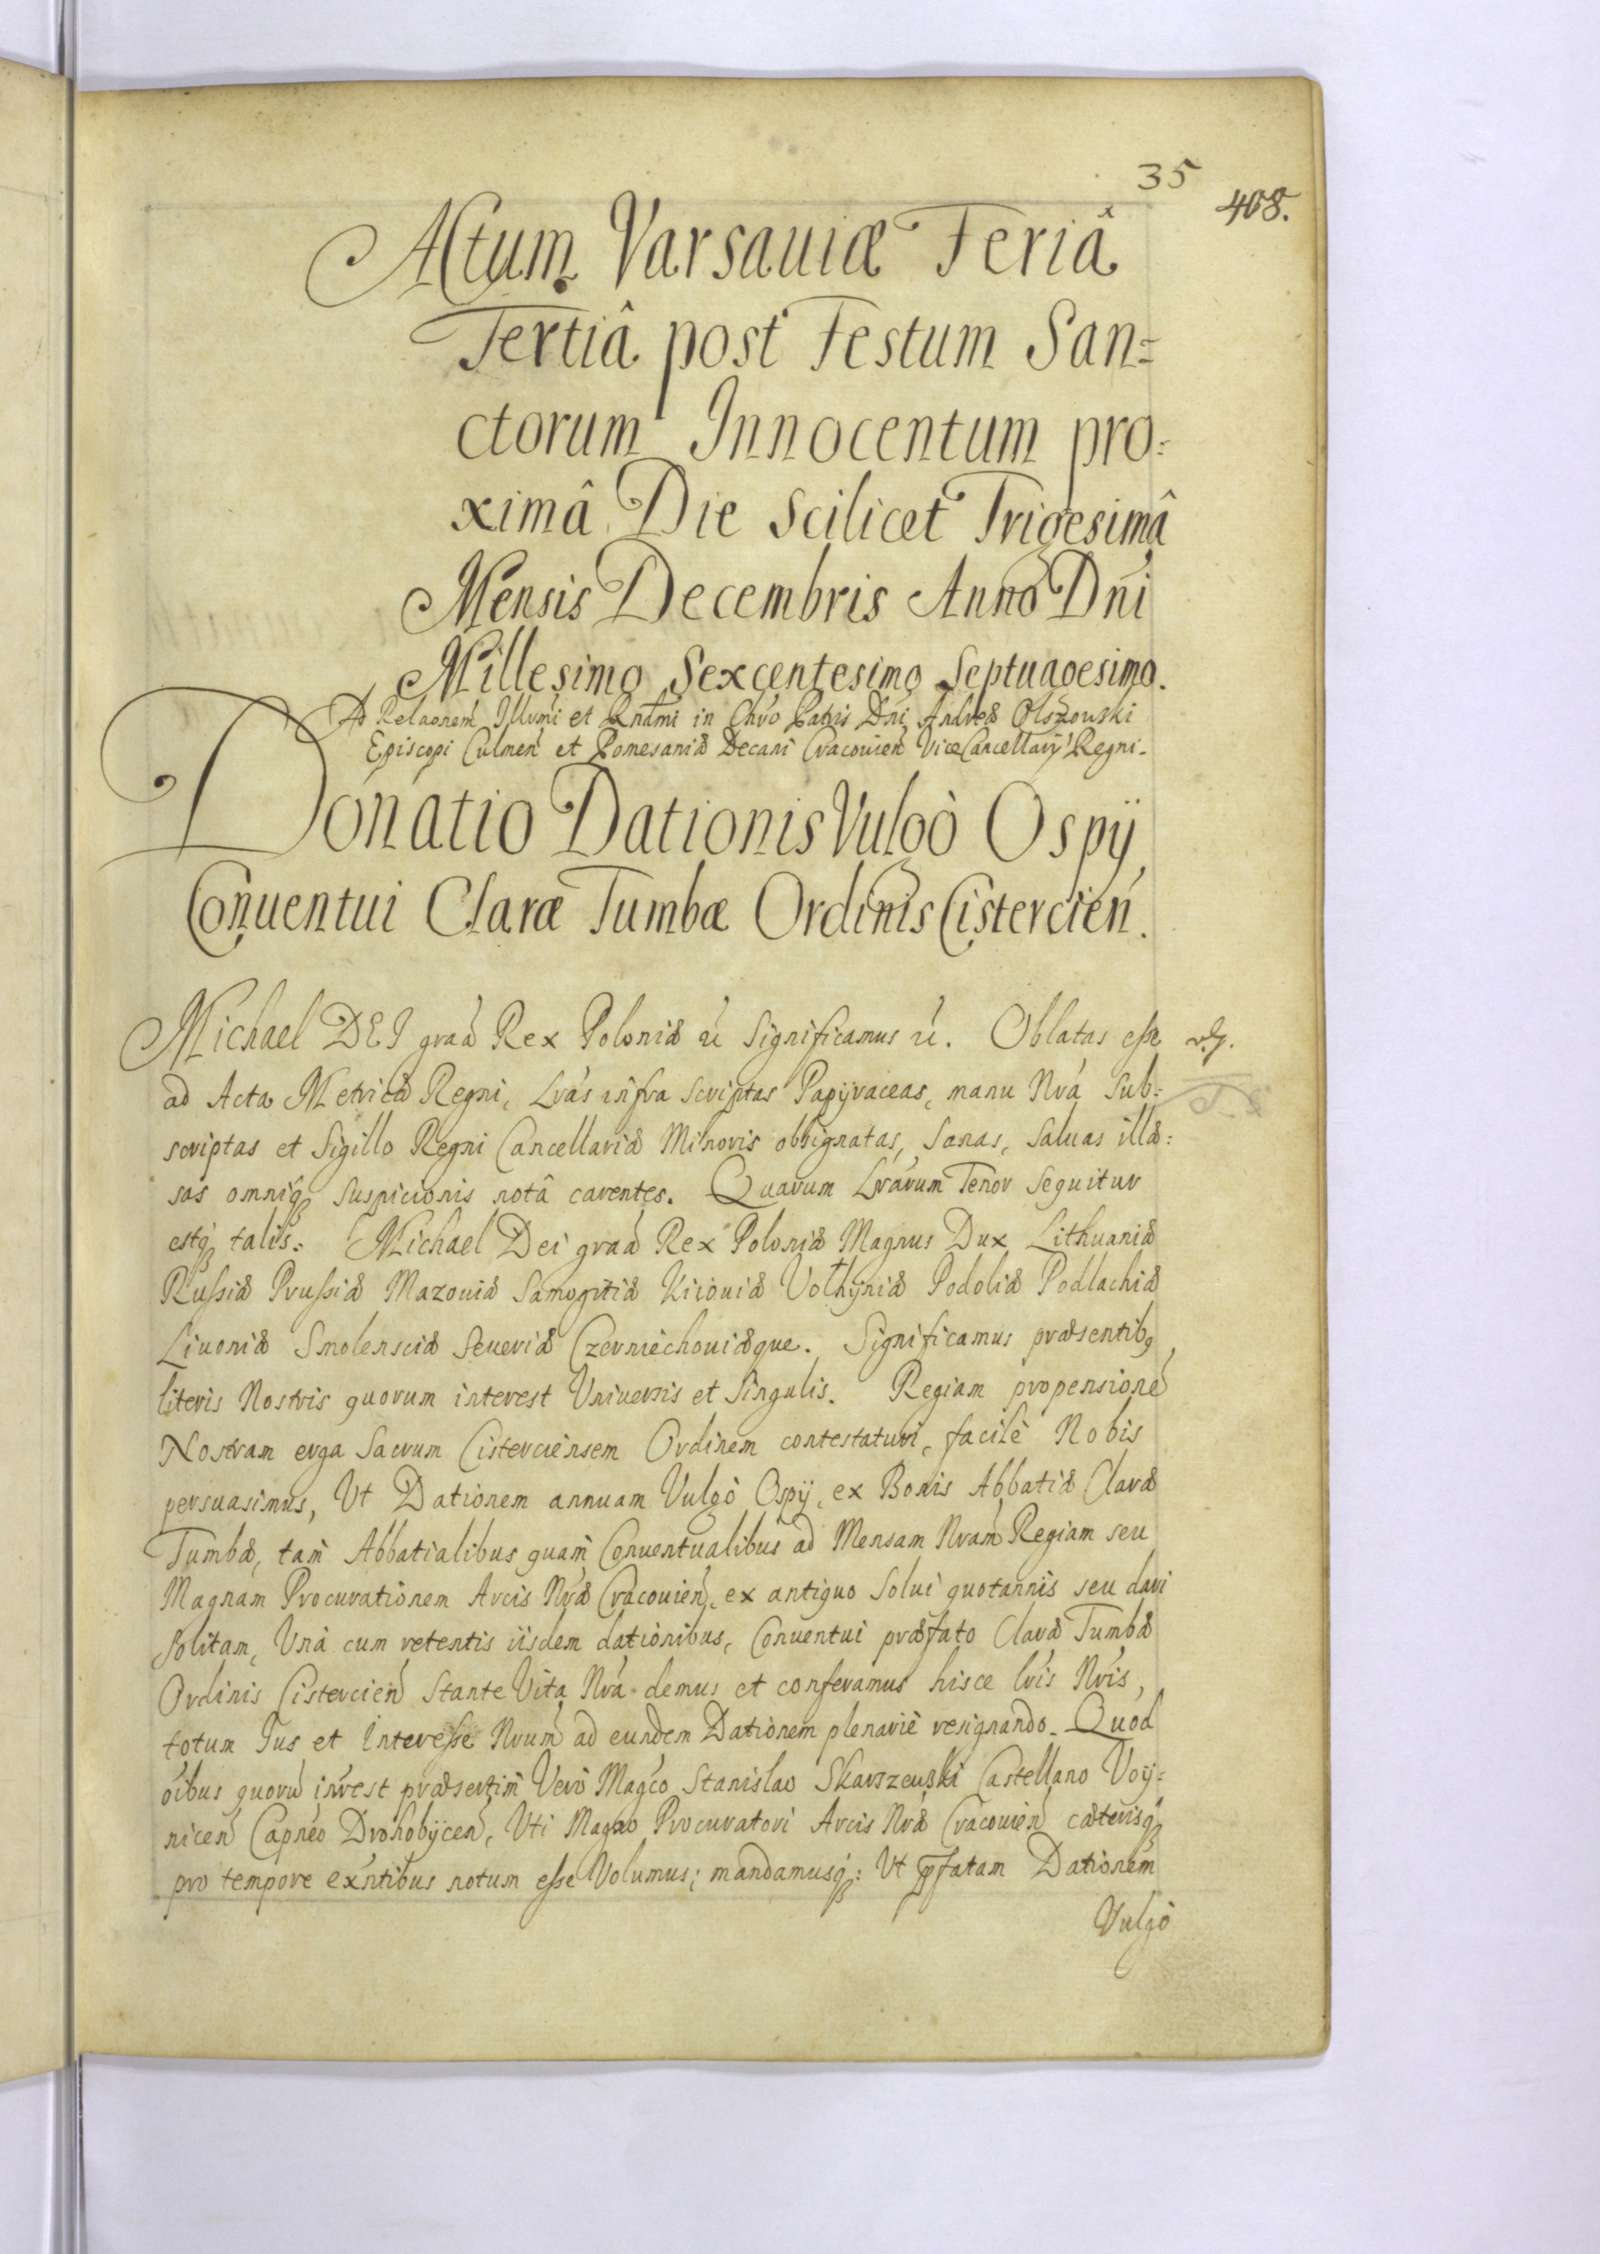 35
408.
Actum Varsauiæ Feriâ
Tertiâ post Festum San=
ctorum Innocentum pro=
ximâ Die Scilicet Trigesimâ
Mensis Decembris Anno Dńi
Millesimo Sexcentesimo Septuagesimo.
Ad Relaonem Illvmi et Rndmi in Chro Patris Dńi Andreæ Olszouski
Episcopi Culmeń et Pomesaniæ Decani Cracouień ViceCancellarÿ Regni.
Donatio Dationis Vulgò Ospÿ
Conuentui Claræ Tumbæ Ordinis Cistercień.
Michael DEI graá Rex Poloniæ Significamus. Oblatas esse
ad Acta Metricæ Regni, Lrás infra scriptas Papÿraceas, manu Nrá Sub=
scriptas et Sigillo Regni Cancellariæ Minoris obsignatas, Sanas, Saluas illæ=
sas omniq́ß suspicionis notâ carentes. Quarum Lrárum Tenor Sequitur
estq́ß talis: Michael Dei graá Rex Poloniæ Magnus Dux Lithuaniæ
Russiæ Prussiæ Mazouiæ Samogitiæ Kiiouiæ Volhÿniæ Podoliæ Podlachiæ
Liuoniæ Smolensciæ Seueriæ Czerniechouiæque. Significamus præsentibꝰ
literis Nostris quorum interest Vniuersis et Singulis. Regiam propensioné
Nostram erga Sacrum Cisterciensem Ordinem contestaturi, facilè Nobis
persuasimus, Vt Dationem annuam Vulgò Ospÿ, ex Bonis Abbatiæ Claræ
Tumbæ, tam Abbatialibus quam Conuentualibus ad Mensam Nrám Regiam seu
Magnam Procurationem Arcis Nræ Cracouień, ex antiquo Solui quotannis seu dari
solitam, Vnà cum retentis iisdem dationibus, Conuentui præfato Claræ Tumbæ
Ordinis Cistercień Stante Vita Nrá demus et conferamus hisce lris Nris,
totum Jus et Interesse Nrum ad eundem Dationem plenariè resignando. Quod
oibus quorú inrest præsertim Verò Magco Stanislao Skarszeuski Castellano Voÿ=
niceń Capnéo Drohobÿceń, Vti Magno Procuratori Arcis Nræ Cracouień cæterisq́ß
pro tempore exńtibus notum esse Volumus; mandamusq́ß: Vt pfatam Dationem
Vulgò